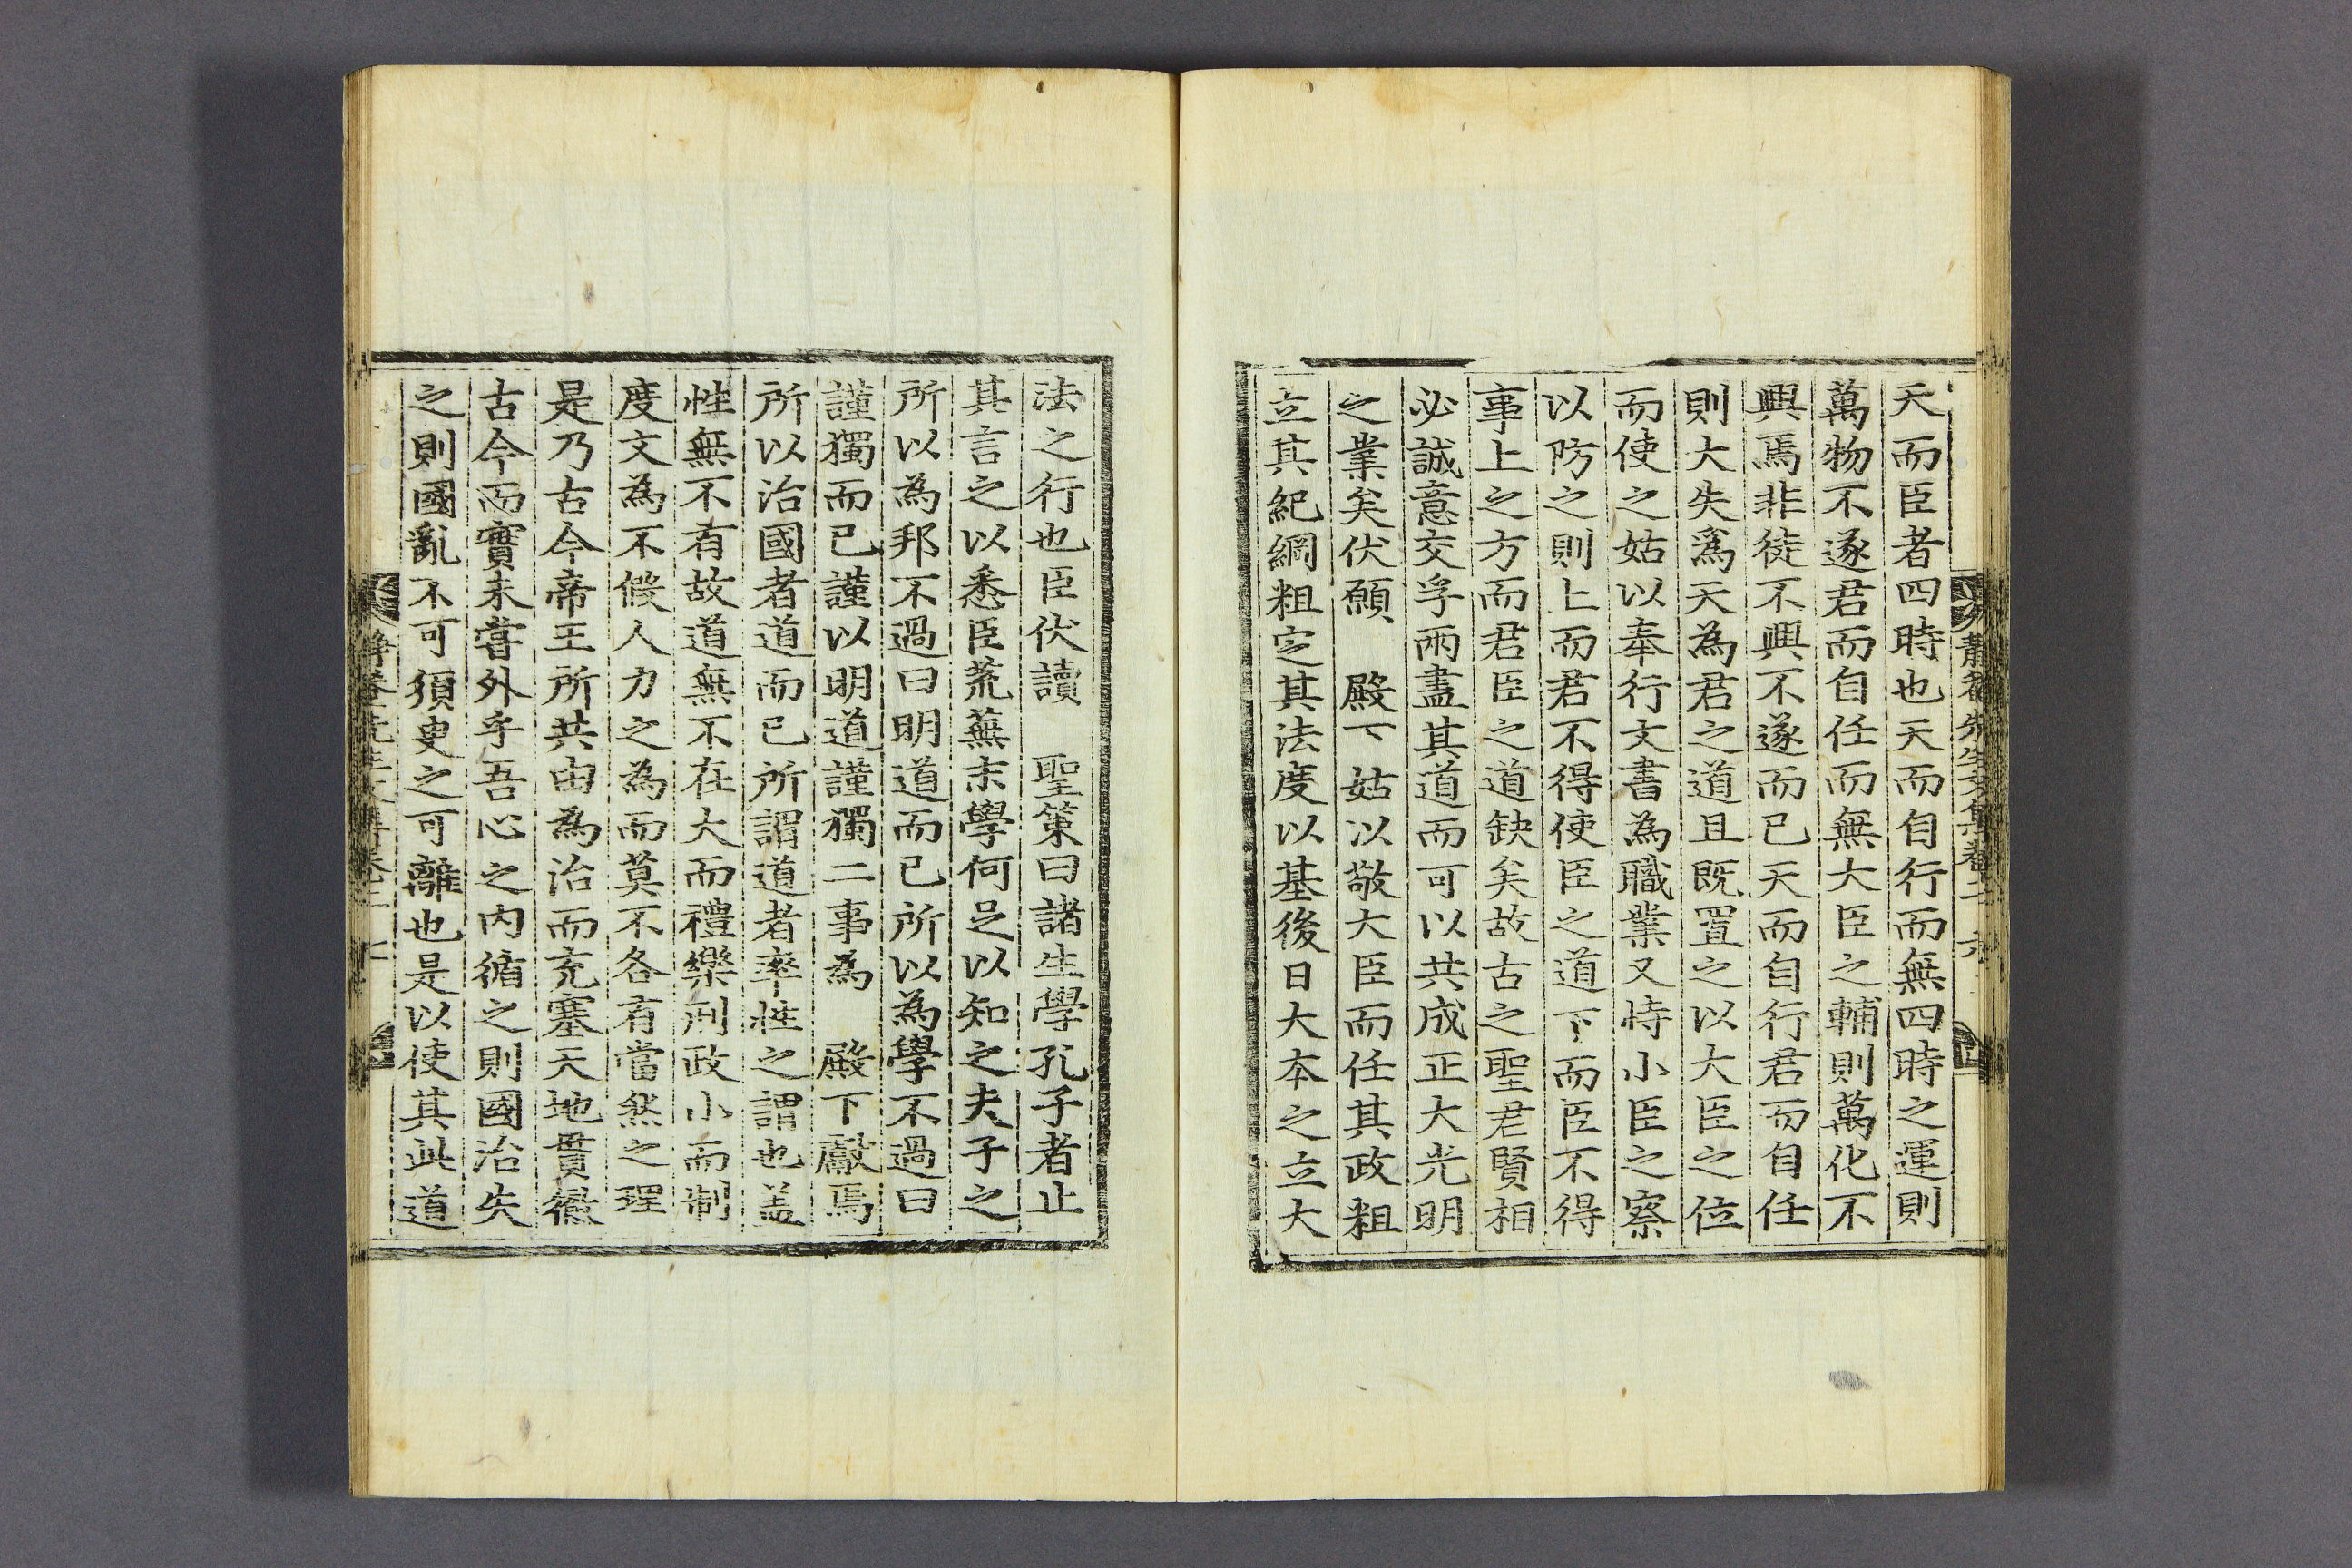 靜菴先生文集卷二 六
天而臣者四時也天而自行而無四時之運則
萬物不遂君而自任而無大臣之輔則萬化不
興焉非徒不興不遂而已天而自行君而自任
則大失爲天為君之道且既置之以大臣之位
而使之姑以奉行文書為職業又恃小臣之察
以防之則上而君不得使臣之道下而臣不得
事上之方而君臣之道缺矣故古之聖君賢相
必誠意交孚兩盡其道而可以共成正大光明
之業矣伏願 殿下姑以敬大臣而任其政粗
立其紀綱粗定其法度以基後日大本之立大
法之行也臣伏讀 聖策曰諸生學孔子者止
其言之以悉臣荒蕪末學何足以知之夫子之
所以為邦不過曰明道而已所以為學不過曰
謹獨而已謹以明道謹獨二事為 殿下獻焉
所以治國者道而已所謂道者率性之謂也盖
性無不有故道無不在大而禮樂刑政小而制
度文為不假人力之為而莫不各有當然之理
是乃古今帝王所共由為治而充塞天地貫徹
古今而實未嘗外乎吾心之内循之則國治失
之則國亂不可須臾之可離也是以使其此道